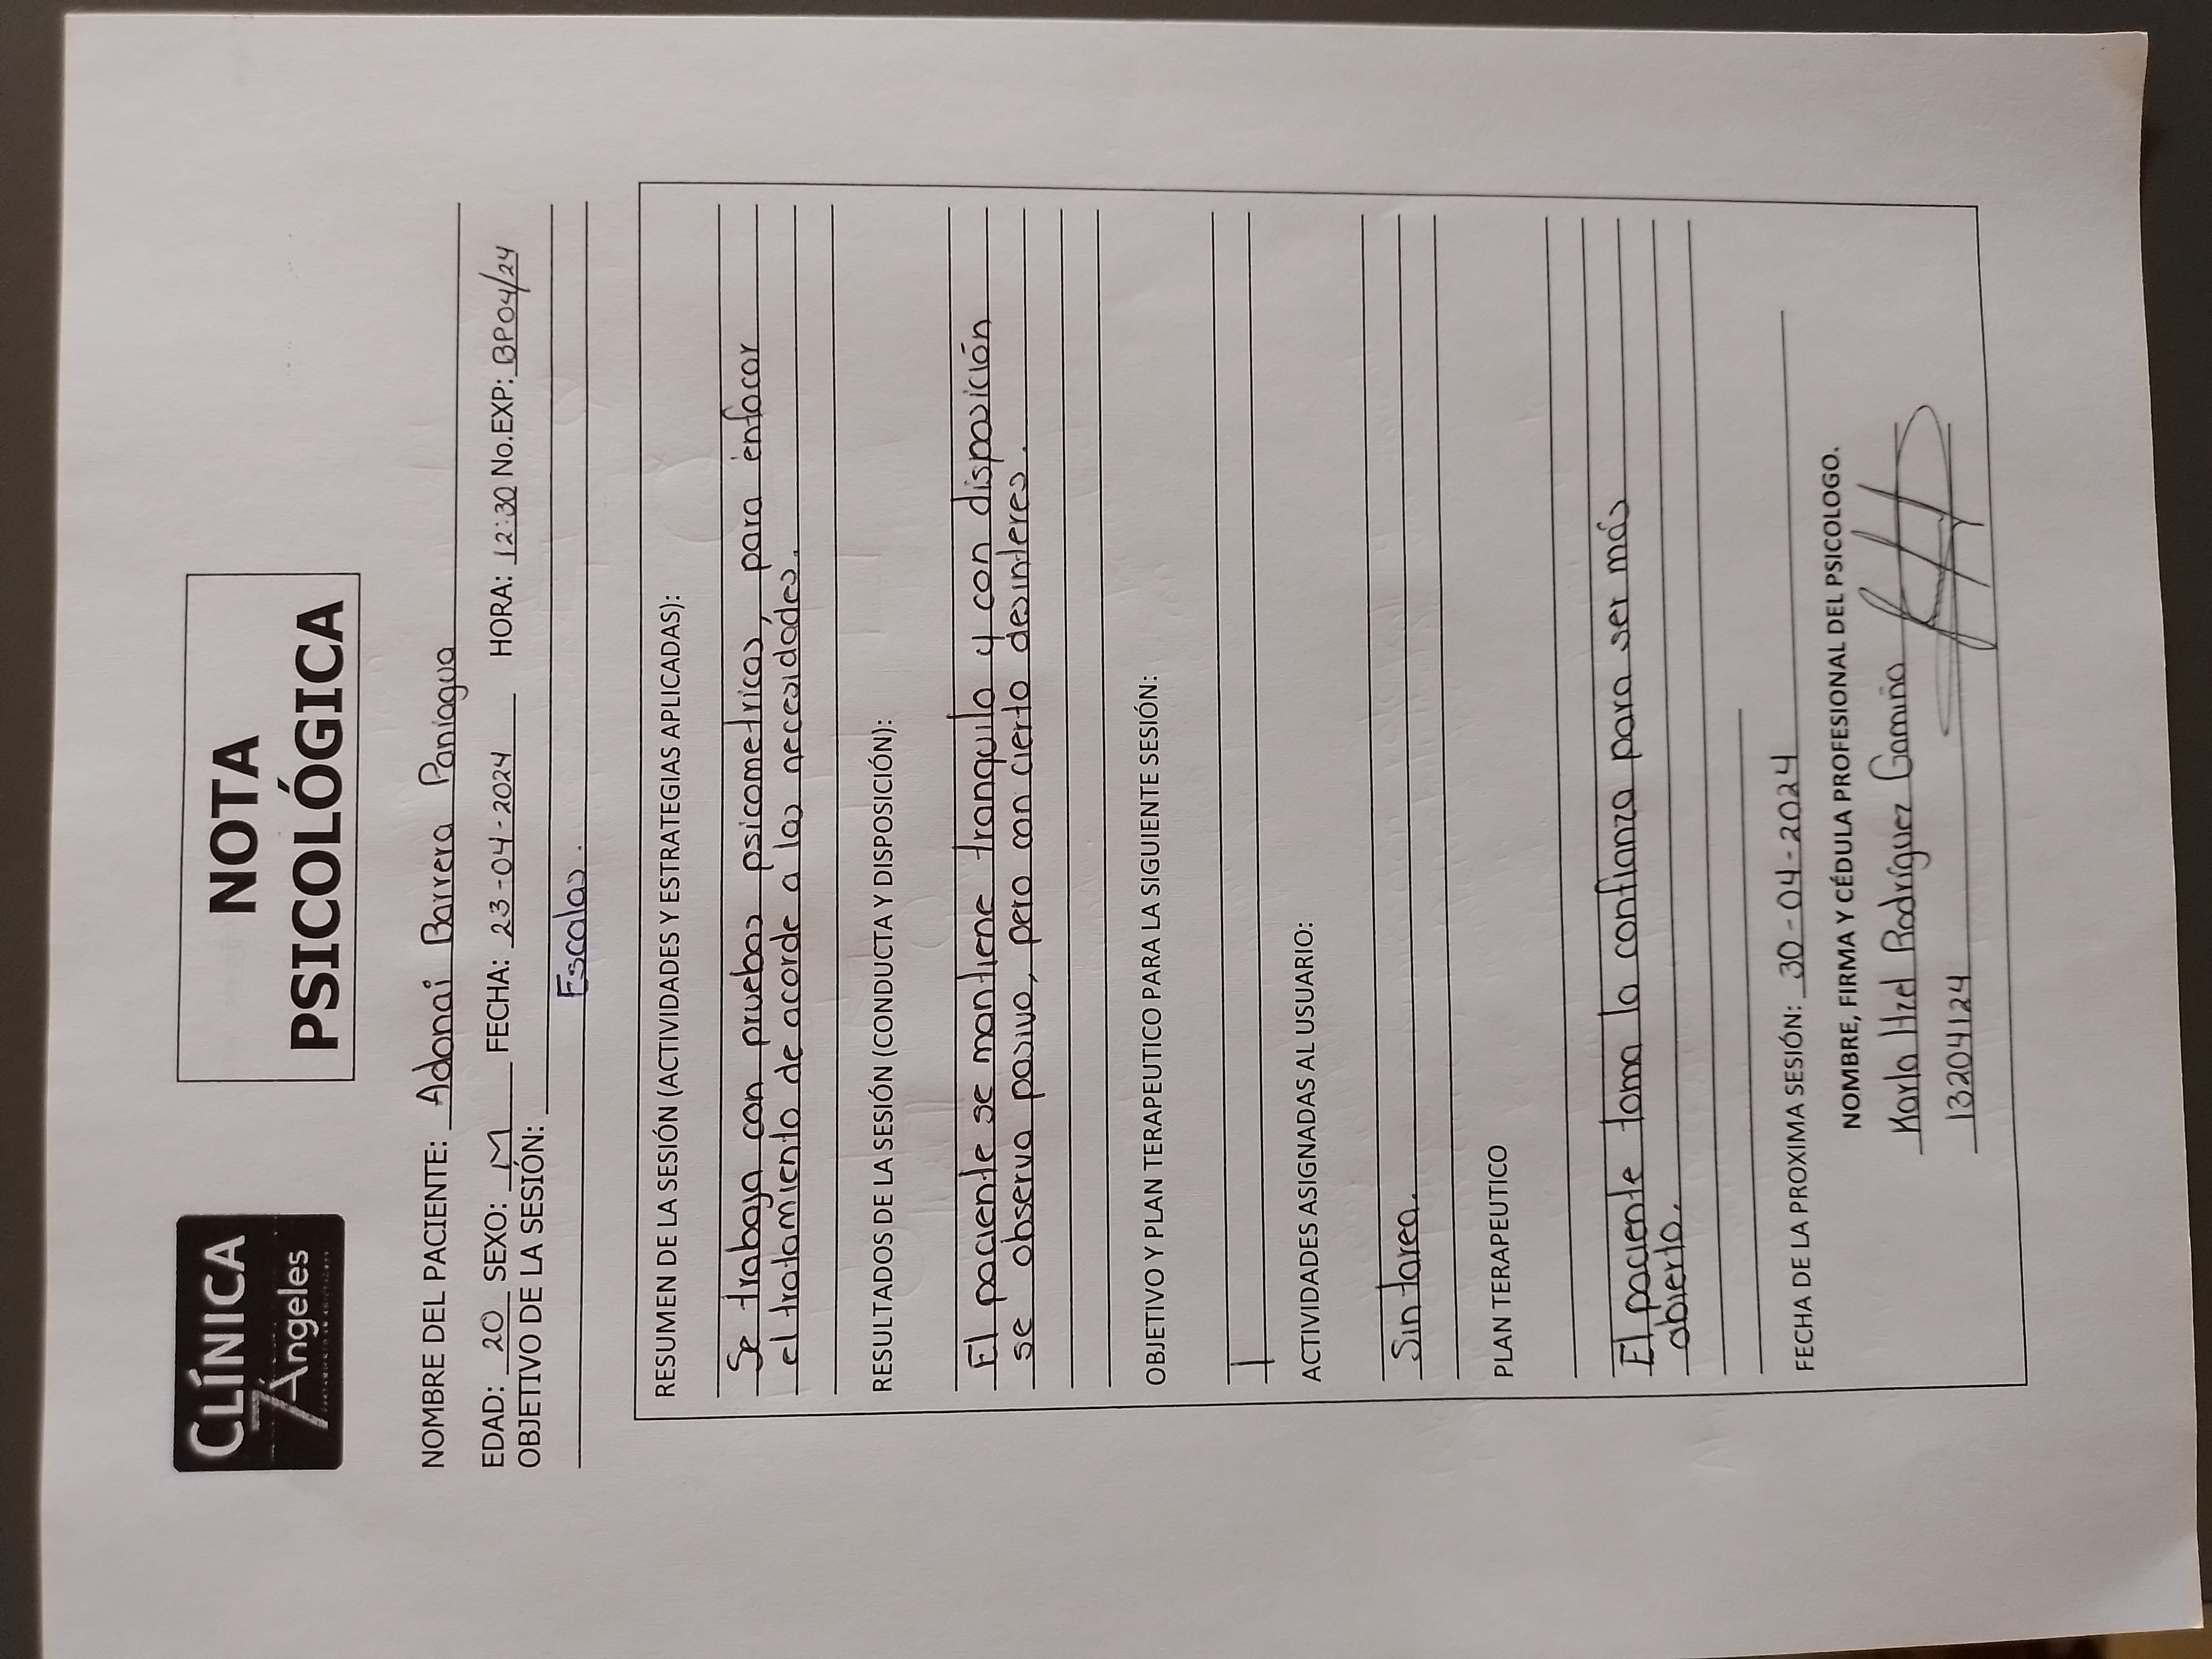 CLÍNICA
7 Ángeles
NOTA
PSICOLÓGICA
NOMBRE DEL PACIENTE: Adonai Barrera Paniagua
EDAD: 20 SEXO: M FECHA: 23-04-2024 HORA: 12:30 No.EXP: BP04/24
OBJETIVO DE LA SESIÓN:
Escalas.
RESUMEN DE LA SESIÓN (ACTIVIDADES Y ESTRATEGIAS APLICADAS):
Se trabaja con pruebas psicometricas, para enfocar
el tratamiento de acorde a las necesidades.
RESULTADOS DE LA SESIÓN (CONDUCTA Y DISPOSICIÓN):
El paciente se mantiene tranquilo y con disposición
se observa pasivo, pero con cierto desinteres.
OBJETIVO Y PLAN TERAPEUTICO PARA LA SIGUIENTE SESIÓN:
ACTIVIDADES ASIGNADAS AL USUARIO:
Sin tarea.
PLAN TERAPEUTICO
El paciente toma la confianza para ser más
abierto.
FECHA DE LA PROXIMA SESIÓN: 30-04-2024
NOMBRE, FIRMA Y CÉDULA PROFESIONAL DEL PSICOLOGO.
Karla Itzel Rodríguez Gamiño
13204124